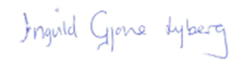 Ingvild Gjone Lyberg